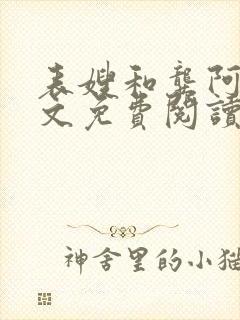 表嫂和龔阿
文免費閱讀
神舍里的小猫